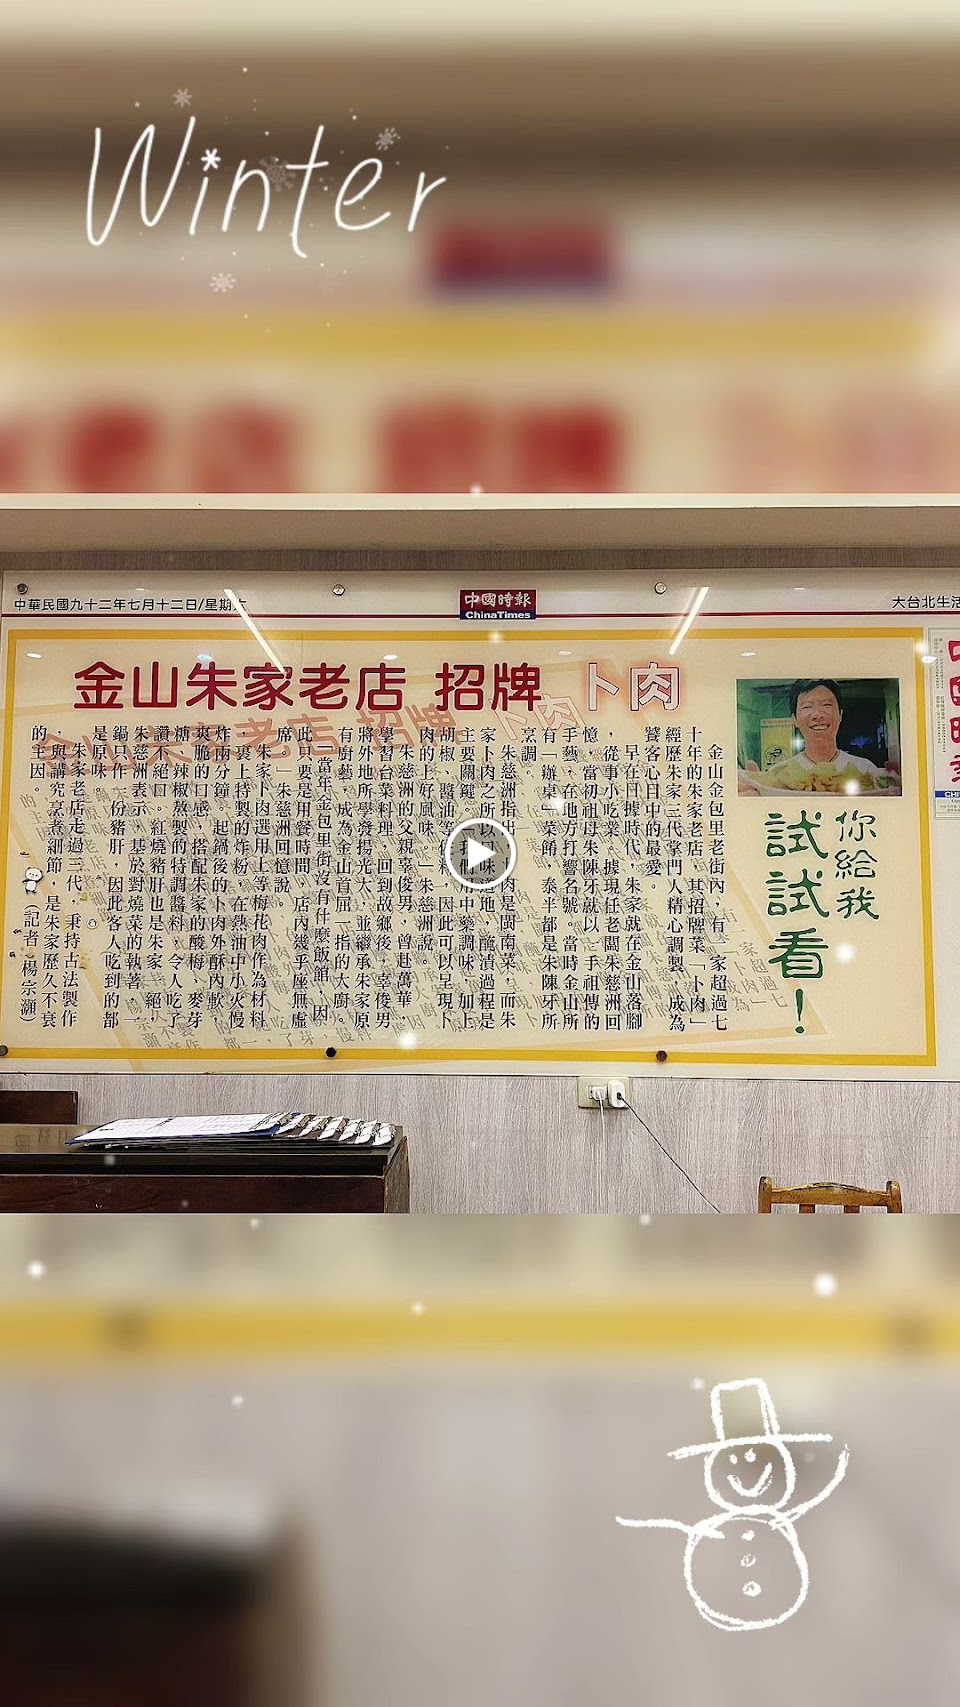 Winter
中華民國九十二年七月十二日/星期六
中國時報
ChinaTimes
大台北生活
金山朱家老店 招牌 卜肉
你給我
試試看！
金山金包里老街內，有一家超過七
十年的朱家老店，其招牌菜「卜肉」
經歷朱家三代掌門人精心調製，成為
饕客心目中的最愛。
早在日據時代，朱家就在金山落腳
，從事小吃業。據現任老闆朱慈洲回
憶，當初祖母朱陳牙就以一手祖傳的
手藝，在地方打響名號。當時金山所
有「辦桌」菜餚，泰半都是朱陳牙所
烹調。
朱慈洲指出，卜肉是閩南菜，而朱
家卜肉之所以口味道地，醃漬過程是
主要關鍵。「我們用中藥調味，加上
胡椒、醬油等佐料，因此可以呈現卜
肉的上好風味。」朱慈洲說。
朱慈洲的父親辜俊男，曾赴萬華，
學習台菜料理，回到故鄉後，辜俊男
將外地所學發揚光大，並繼承朱家原
有廚藝，成為金山首屈一指的大廚。
「當年金包里街沒有什麼飯館，因
此只要是用餐時間，店內幾乎座無虛
席。」朱慈洲回憶說。
朱家卜肉選用上等梅花肉作為材料
，裹上特製的炸粉，在熱油中小火慢
炸兩分鐘。起鍋後的卜肉外酥內軟，
爽脆的口感，搭配朱家的酸梅、麥芽
糖、辣椒熬製的特調醬料，令人吃了
讚不絕口。紅燒豬肝也是朱家一絕，
朱慈洲表示，基於對燒菜的執著，一
鍋只作一份豬肝，因此客人吃到的都
是原味。
朱家老店走過三代，秉持古法製作
，與講究烹煮細節，是朱家歷久不衰
的主因。
（記者 楊宗灝）